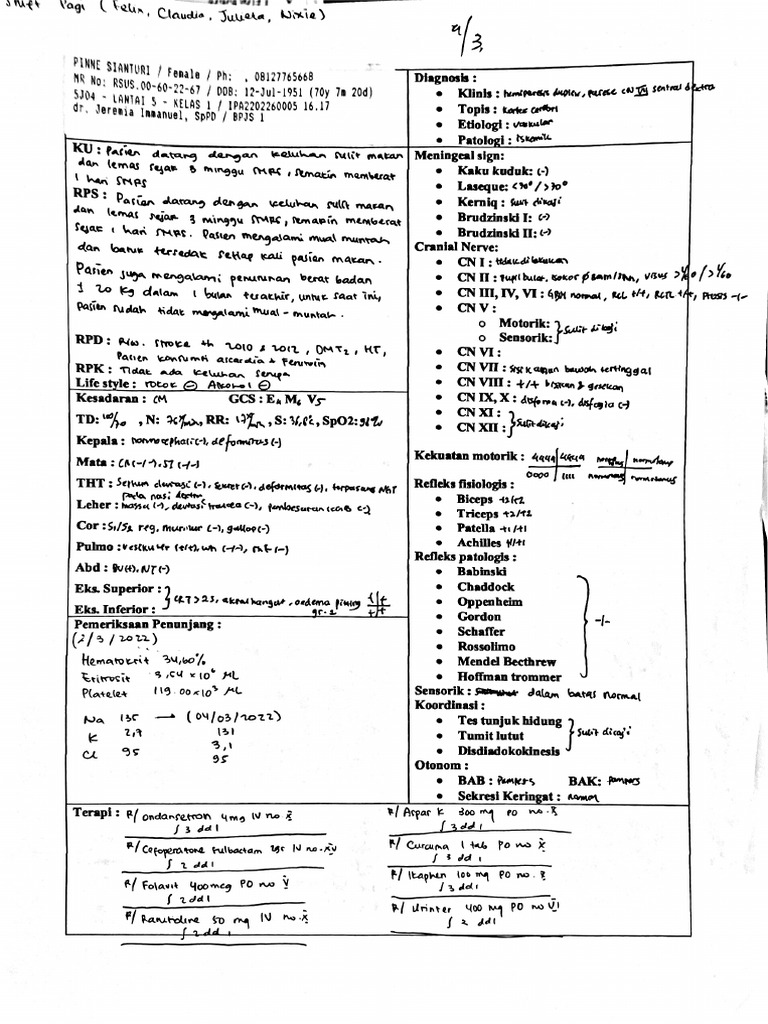 Shift Pagi (Felix, Claudia, Juliela, Nixie)
4/3
PINNE SIANTURI / Female / Ph: , 08127765668
MR No: RSUS.00-60-22-67 / DOB: 12-Jul-1951 (70y 7m 20d)
SJ04 - LANTAI 5 - KELAS 1 / IPA2202260005 16.17
dr. Jeremia Immanuel, SpPD / BPJS 1
KU : Pasien datang dengan keluhan sulit makan
dan lemas sejak 3 minggu SMRS, semakin memberat
1 hari SMRS
RPS : Pasien datang dengan keluhan sulit makan
dan lemas sejak 3 minggu SMRS, semakin memberat
sejak 1 hari SMRS. Pasien mengalami mual muntah
dan batuk tersedak setiap kali pasien makan.
Pasien juga mengalami penurunan berat badan
± 20 kg dalam 1 bulan terakhir, untuk saat ini,
pasien sudah tidak mengalami mual-muntah.
RPD : Riw. stroke th 2010 & 2012, DMT2, HT,
Pasien konsumsi ascardia +
RPK : Tidak ada keluhan serupa
Life style : rokok ⊖ Alkohol ⊖
Kesadaran : CM GCS : E4 M6 V5
TD: N: RR: S: 36, SpO2:
Kepala : normocephali (-), deformitas (-)
Mata : CA (-/-), SI (-/-)
THT : Septum deviasi (-), sekret (-), deformitas (-), terpasang NGT
pada nasi dextra
Leher : massa (-), deviasi trakea (-), pembesaran KGB (-)
Cor : S1/S2 reg, murmur (-), gallop (-)
Pulmo : vesikuler (+/+), wh (-/-), rh (-/-)
Abd : BU (+), NT (-)
Eks. Superior :
Eks. Inferior : CRT > 2s, akral hangat, oedema pitting +/+ +/+
gr. 2
Pemeriksaan Penunjang :
(2/3/2022)
Hematokrit 34,60%
Eritrosit 3,54 x 10⁶ /µL
Platelet 119.00 x 10³ /µL
Na 135 → (04/03/2022)
131
K 2,7 3,1
Cl 95 95
Diagnosis :
• Klinis : hemiparesis duplex, parese CN VII sentral dextra
• Topis : korteks cerebri
• Etiologi : vaskular
• Patologi : iskemik
Meningeal sign:
• Kaku kuduk: (-)
• Laseque: <70°/>70°
• Kerniq : Sulit dikaji
• Brudzinski I: (-)
• Brudzinski II: (-)
Cranial Nerve:
• CN I : tidak dilakukan
• CN II : Pupil bulat, isokor Ø 3mm/3mm, visus >1/60 / >1/60
• CN III, IV, VI : GBM normal, RCL +/+, RCTL +/+, Ptosis -/-
• CN V :
o Motorik:
o Sensorik: Sulit dikaji
• CN VI :
• CN VII : Sisi kanan bawah tertinggal
• CN VIII : +/+ bisikan & gesekan
• CN IX, X : disfonia (-), disfagia (-)
• CN XI :
• CN XII : Sulit dikaji
Kekuatan motorik : 4444 | 4444
0000 | 1111
Refleks fisiologis :
• Biceps +2/+2
• Triceps +2/+2
• Patella +1/+1
• Achilles +1/+1
Refleks patologis :
• Babinski
• Chaddock
• Oppenheim
• Gordon
• Schaffer -/-
• Rossolimo
• Mendel Becthrew
• Hoffman trommer
Sensorik : dalam batas normal
Koordinasi :
• Tes tunjuk hidung
• Tumit lutut Sulit dikaji
• Disdiadokokinesis
Otonom :
• BAB : Pampers BAK: Pampers
• Sekresi Keringat : normal
Terapi : R/ Ondansetron 4mg IV no. X
∫ 3 dd 1
R/ Cefoperatone sulbactam 2gr IV no. XV
∫ 2 dd 1
R/ Folavit 400 mcg PO no V
∫ 2 dd 1
R/ Ranitidine 50 mg IV no. X
∫ 2 dd 1
R/ Aspar K 300 mg PO no. X
∫ 3 dd 1
R/ Curcuma 1 tab PO no X
∫ 3 dd 1
R/ Ikaphen 100 mg PO no. X
∫ 3 dd 1
R/ Urinter 400 mg PO no VI
∫ 2 dd 1